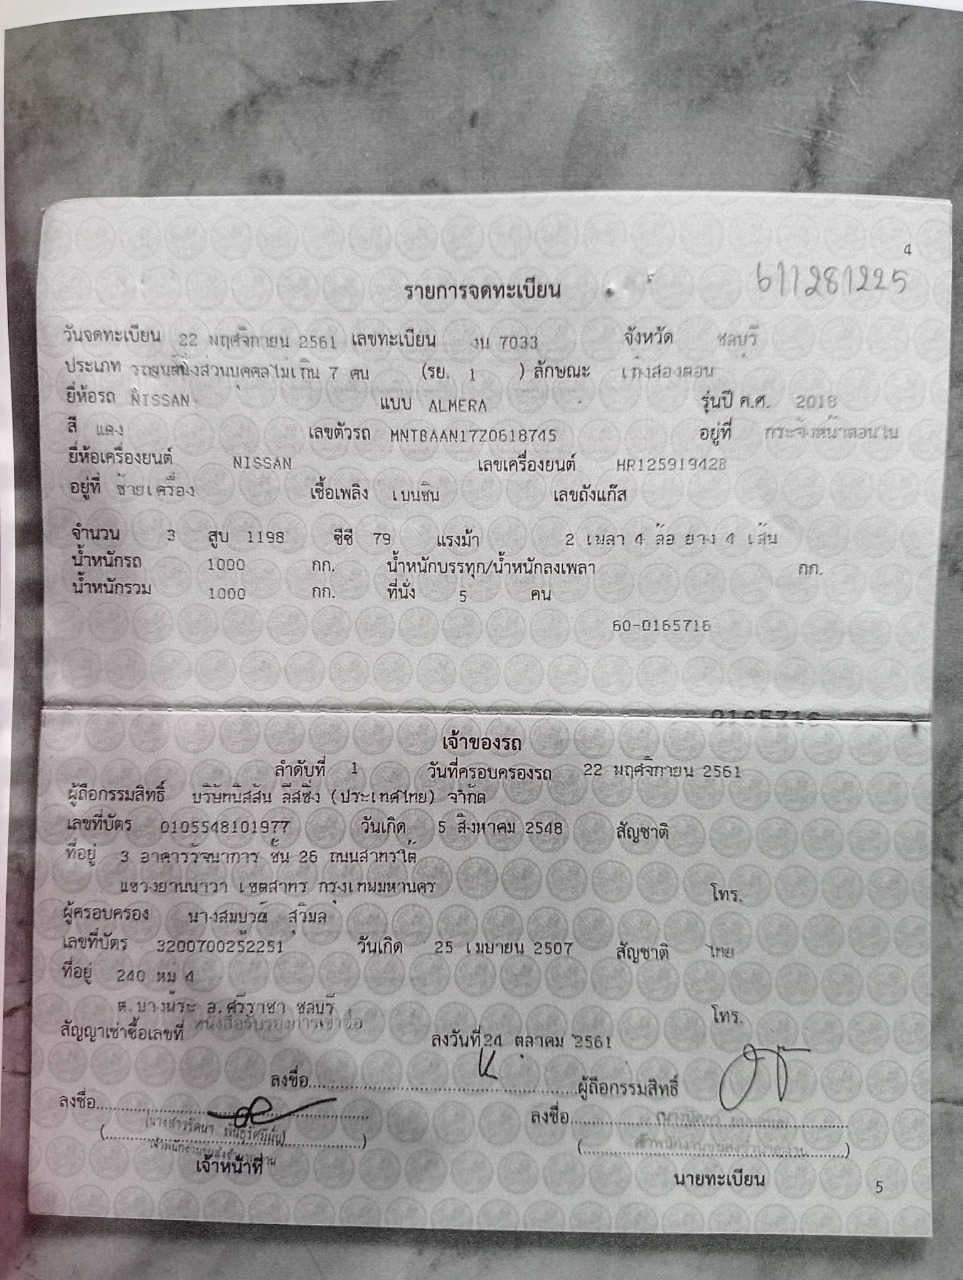 4
611281225
รายการจดทะเบียน
วันจดทะเบียน 22 พฤศจิกายน 2561 เลขทะเบียน งน 7033 จังหวัด ชลบุรี
ประเภท รถยนต์นั่งส่วนบุคคลไม่เกิน 7 คน (รย. 1 ) ลักษณะ เก๋งสองตอน
ยี่ห้อรถ NISSAN แบบ ALMERA รุ่นปี ค.ศ. 2018
สี แดง เลขตัวรถ MNTBAAN17Z0618745 อยู่ที่ กระจังหน้าตอนใน
ยี่ห้อเครื่องยนต์ NISSAN เลขเครื่องยนต์ HR125919428
อยู่ที่ ซ้ายเครื่อง เชื้อเพลิง เบนซิน เลขถังแก๊ส
จำนวน 3 สูบ 1198 ซีซี 79 แรงม้า 2 เพลา 4 ล้อ ยาง 4 เส้น
น้ำหนักรถ 1000 กก. น้ำหนักบรรทุก/น้ำหนักลงเพลา กก.
น้ำหนักรวม 1000 กก. ที่นั่ง 5 คน
60-0165716
0165716
เจ้าของรถ
ลำดับที่ 1 วันที่ครอบครองรถ 22 พฤศจิกายน 2561
ผู้ถือกรรมสิทธิ์ บริษัทนิสสัน ลีสซิ่ง (ประเทศไทย) จำกัด
เลขที่บัตร 0105548101977 วันเกิด 5 สิงหาคม 2548 สัญชาติ
ที่อยู่ 3 อาคารรัจนาการ ชั้น 26 ถนนสาทรใต้
แขวงยานนาวา เขตสาทร กรุงเทพมหานคร โทร.
ผู้ครอบครอง นางสมบูรณ์ สุวิมล
เลขที่บัตร 3200700252251 วันเกิด 25 เมษายน 2507 สัญชาติ ไทย
ที่อยู่ 240 หมู่ 4
ต.บางพระ อ.ศรีราชา ชลบุรี โทร.
สัญญาเช่าซื้อเลขที่ หนังสือรับรองการเช่าซื้อ ลงวันที่ 24 ตุลาคม 2561
ลงชื่อ ผู้ถือกรรมสิทธิ์
ลงชื่อ ลงชื่อ
เจ้าหน้าที่ นายทะเบียน
5